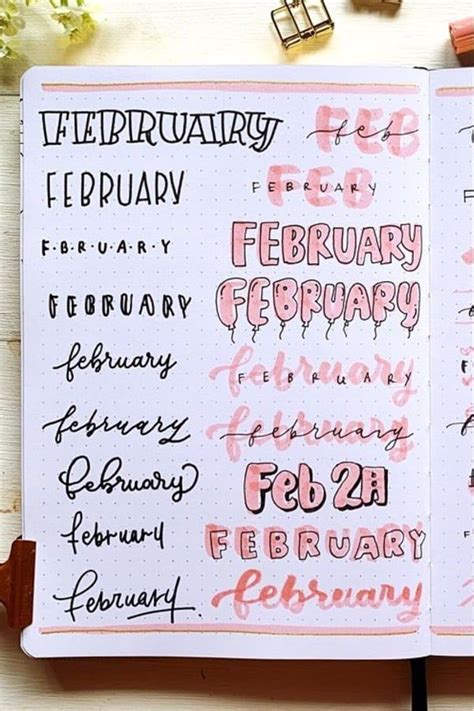 FEBRUARY
FEBRUARY
F·B·R·U·A·R·Y
FEBRUARY
february
february
february
february
february
FEB
feb
FEB
FEBRUARY
FEBRUARY
FEBRUARY
february
FEBRUARY
february
february
Feb
FEBRUARY
february